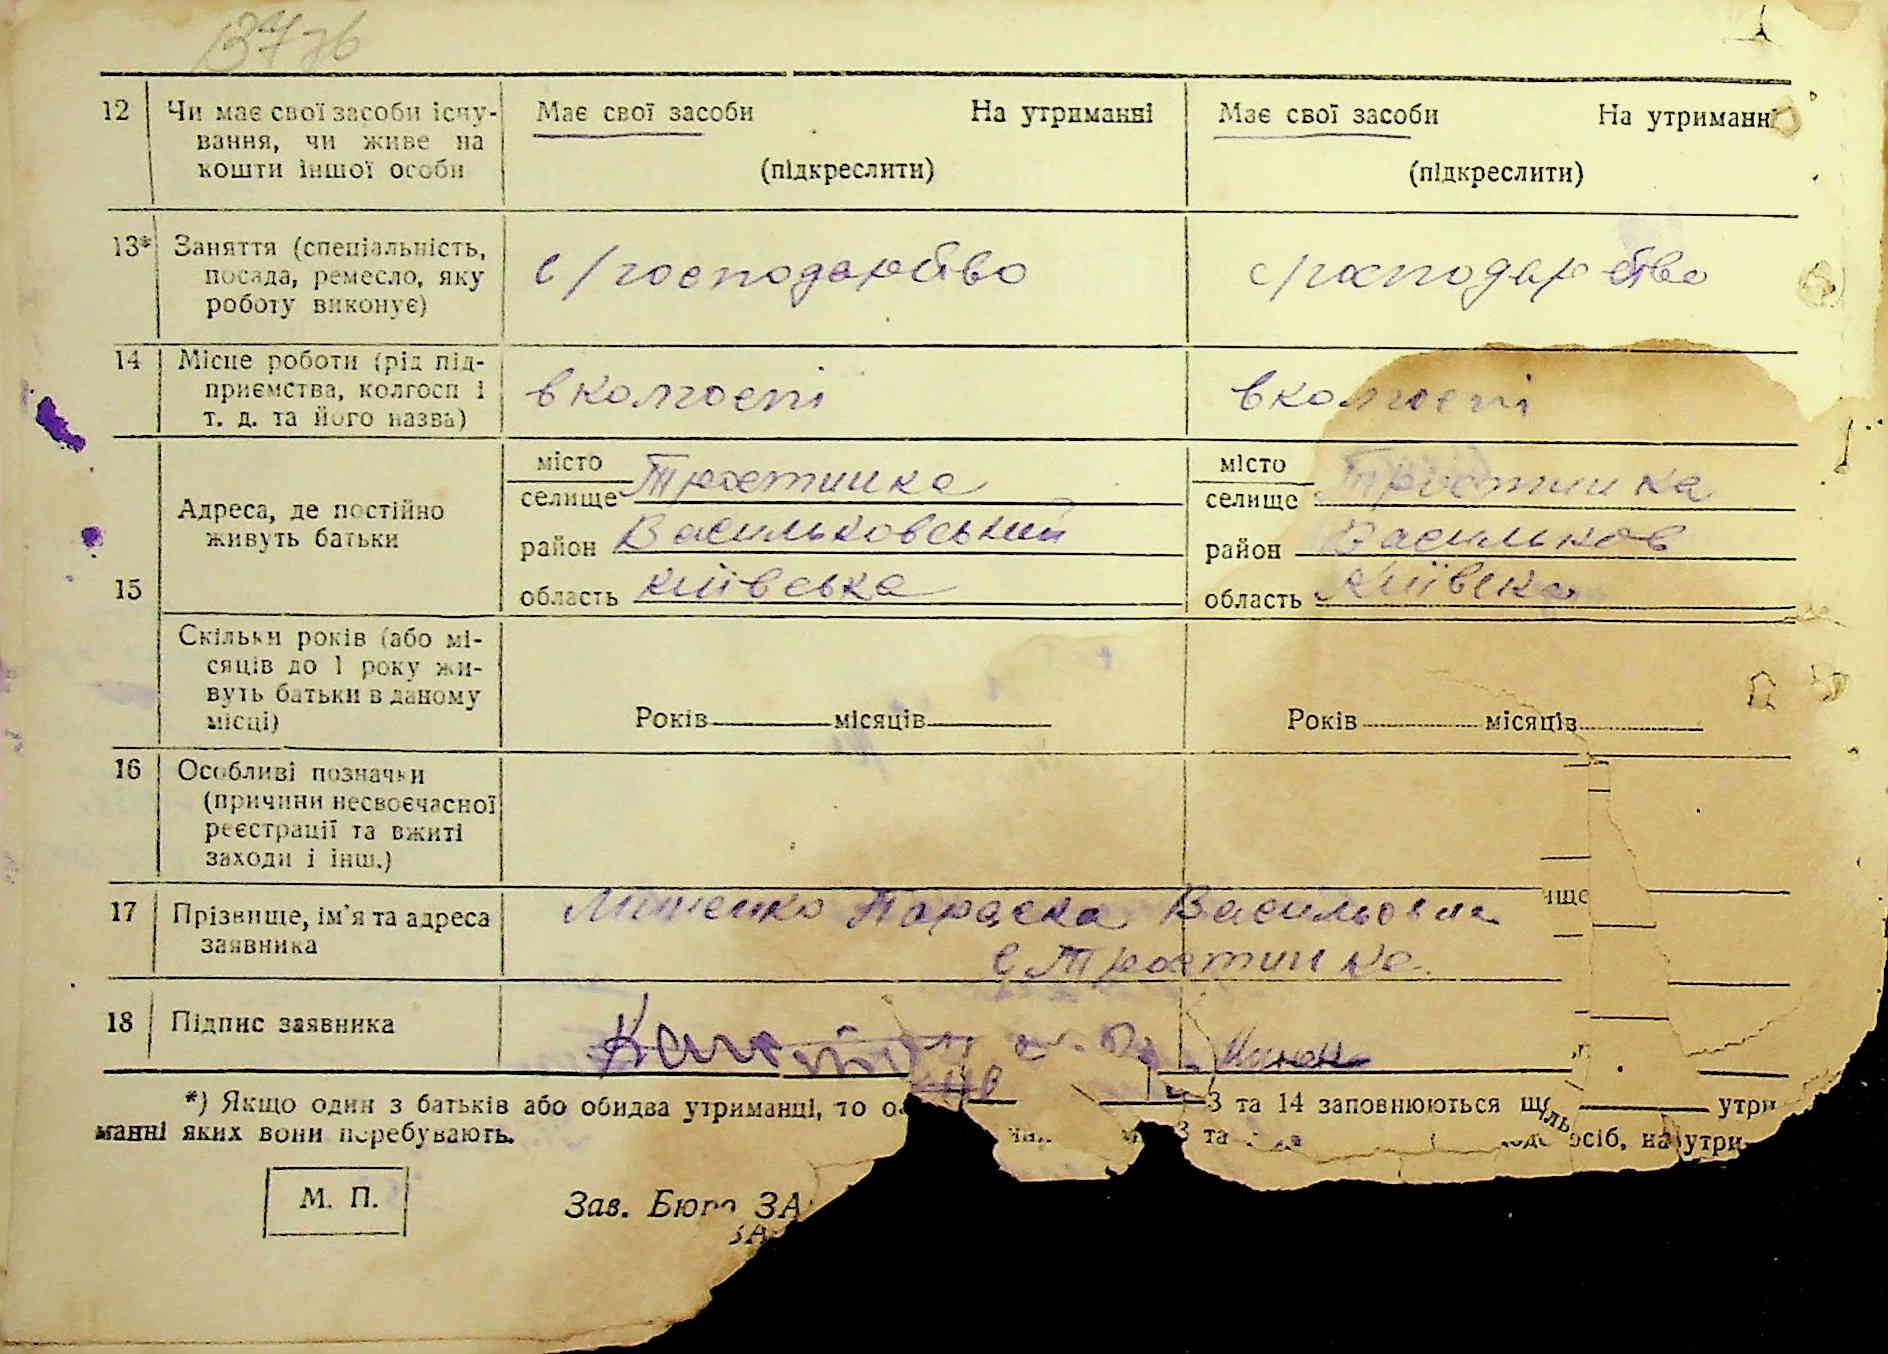 12
Чи має свої засоби існу-
вання, чи живе на
кошти іншої особи
Має свої засоби На утриманні
(підкреслити)
Має свої засоби На утриманні
(підкреслити)
13*
Заняття (спеціальність,
посада, ремесло, яку
роботу виконує)
с/господарство
с/господарство
14
Місце роботи (рід під-
приємства, колгосп і
т. д. та його назва)
в колгоспі
в колгоспі
15
Адреса, де постійно
живуть батьки
місто
селище Тростинка
район Васильковський
область київська
місто
селище Тростинка
район Васильков
область Київска
Скільки років (або мі-
сяців до 1 року жи-
вуть батьки в даному
місці)
Років місяців
Років місяців
16
Особливі позначки
(причини несвоєчасної
реєстрації та вжиті
заходи і інш.)
17
Прізвище, ім'я та адреса
заявника
Параска Васильовна
с Тростинка
18
Підпис заявника
*) Якщо один з батьків або обидва утриманці, то 3 та 14 заповнюються утри
манні яких вони перебувають.
3 та осіб, на утри
М. П.
Зав. Бюро ЗА